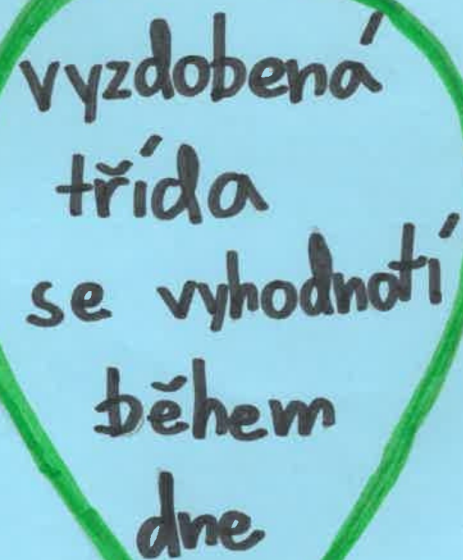 vyzdobená
třída
se vyhodnotí
během
dne